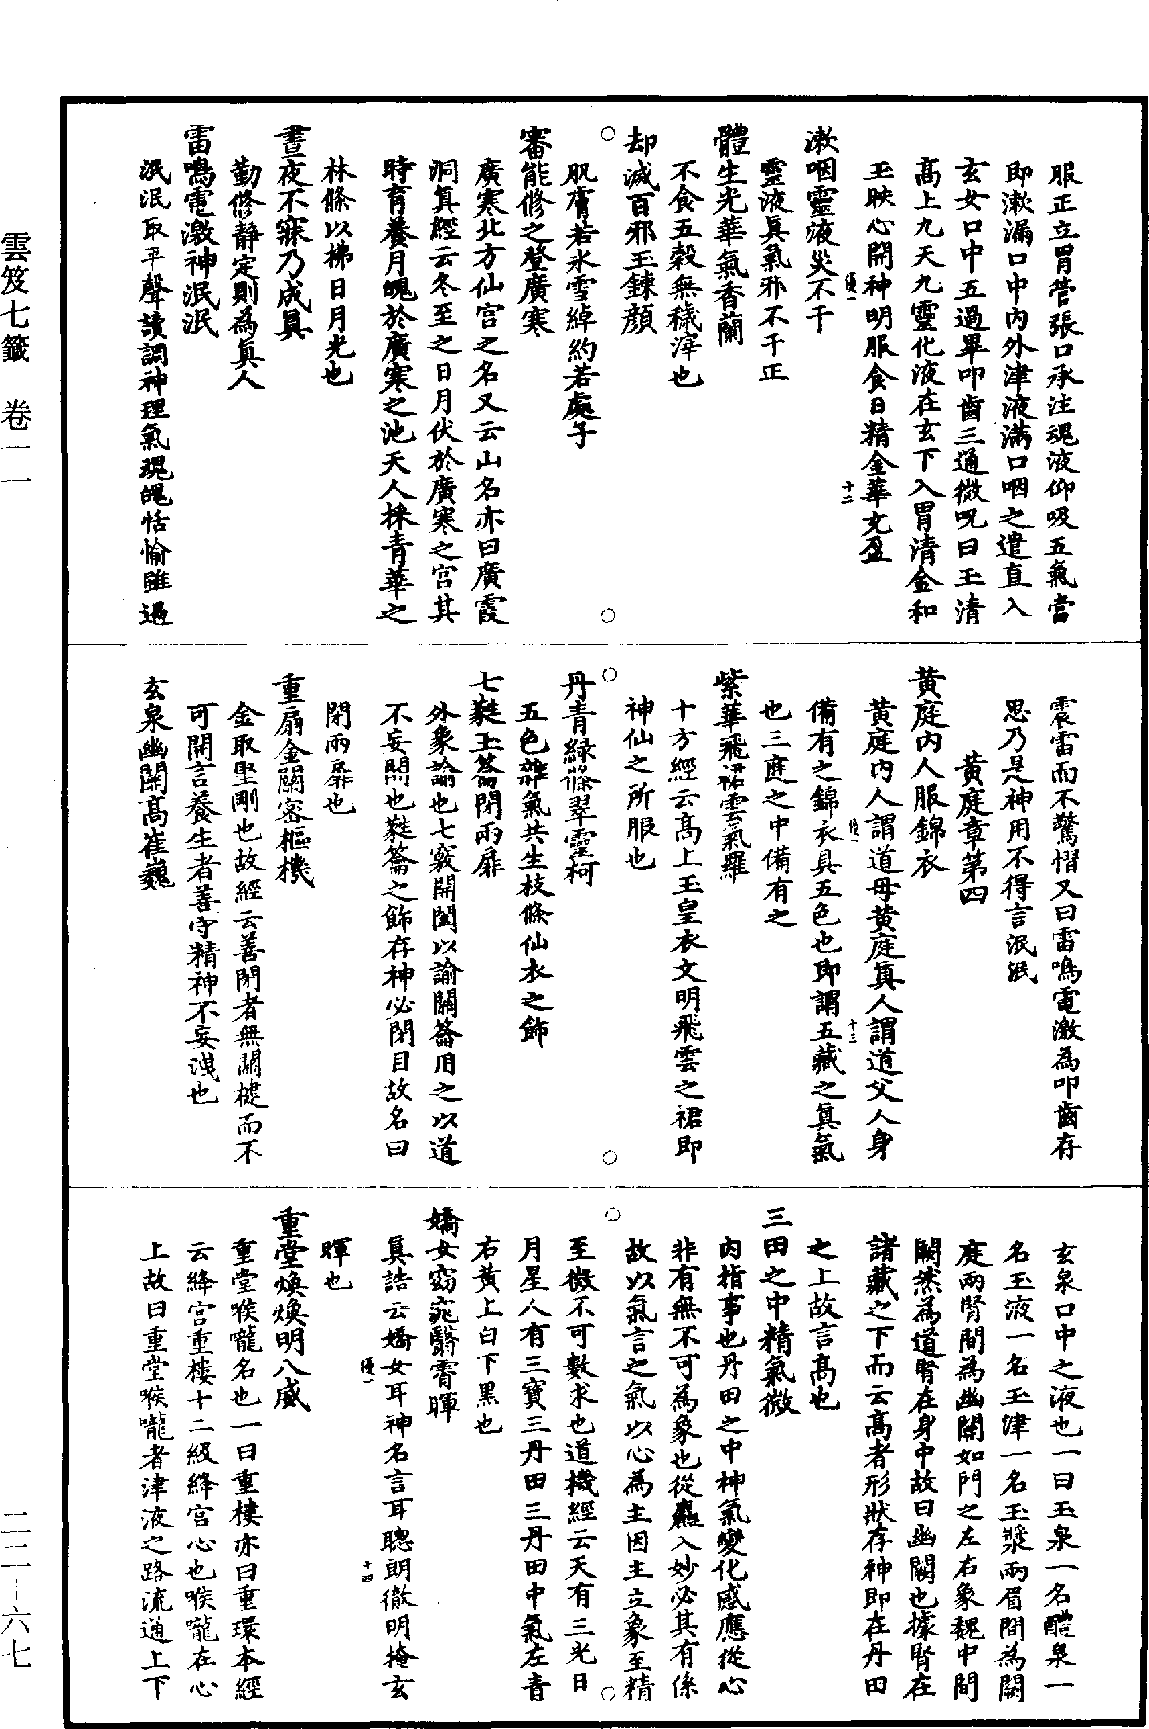 雲笈七籤　卷一一
二二-六七
服正立胃管張口承注魂液仰吸五氣當
即漱漏口中內外津液滿口咽之遣直入
玄女口中五過畢叩齒三通微呪曰玉清
高上九天九靈化液在玄下入胃清金和
玉映心開神明服食日精金華充盈
十二
漱咽靈液災不干
靈液真氣邪不干正
體生光華氣香蘭
不食五穀無穢滓也
却滅百邪玉鍊顏
肌膚若氷雪綽約若處子
審能修之登廣寒
廣寒北方仙宮之名又云山名亦曰廣霞
洞真經云冬至之日月伏於廣寒之宮其
時育養月魄於廣寒之池天人採青華之
林條以拂日月光也
晝夜不寐乃成真
勤修靜定則為真人
雷鳴電激神泯泯
泯泯取平聲讀調神理氣魂魄恬愉雖過
震雷而不驚慴又曰雷鳴電激為叩齒存
思乃是神用不得言泯泯
黃庭章第四
黃庭內人服錦衣
黃庭內人謂道母黃庭真人謂道父人身
十三
備有之錦衣具五色也即謂五藏之真氣
也三庭之中備有之
紫華飛裙雲氣羅
十方經云高上玉皇衣文明飛雲之裙即
神仙之所服也
丹青綠條翠靈柯
五色雜氣共生枝條仙衣之飾
七蕤玉籥閉兩扉
外象諭也七竅開闔以諭關籥用之以道
不妄開也蕤籥之飾存神必閉目故名曰
閉兩扉也
重扇金關密樞機
金取堅剛也故經云善閉者無關楗而不
可開言養生者善守精神不妄洩也
玄泉幽關高崔巍
玄泉口中之液也一曰玉泉一名醴泉一
名玉液一名玉津一名玉漿兩眉間為闕
庭兩腎間為幽關如門之左右象魏中間
闕然為道腎在身中故曰幽關也據腎在
諸藏之下而云高者形狀存神即在丹田
之上故言高也
三田之中精氣微
內指事也丹田之中神氣變化感應從心
非有無不可為象也從麤入妙必其有係
故以氣言之氣以心為主因主立象至精
至微不可數求也道機經云天有三光日
月星人有三寶三丹田三丹田中氣左青
右黃上白下黑也
嬌女窈窕翳霄暉
真誥云嬌女耳神名言耳聰朗徹明掩玄
十四
暉也
重堂煥煥明八威
重堂喉嚨名也一曰重樓亦曰重環本經
云絳宮重樓十二級絳宮心也喉嚨在心
上故曰重堂喉嚨者津液之路流通上下